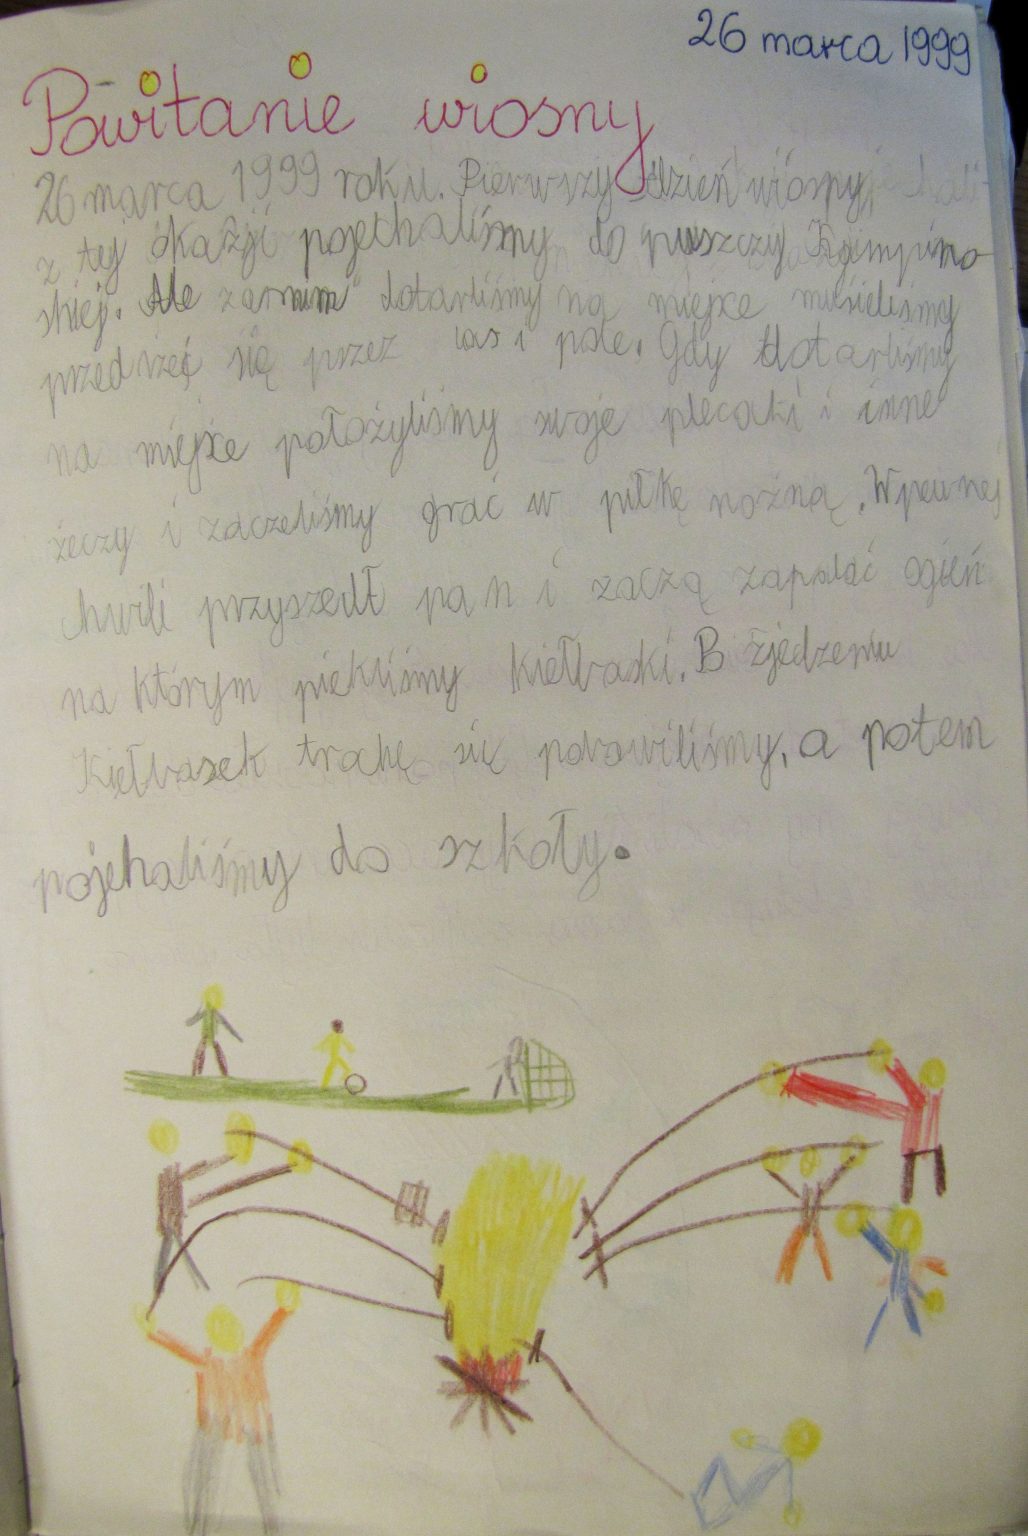 26 marca 1999
Powitanie wiosny
26 marca 1999 roku. Pierwszy dzień wiosny
z tej okazji pojechaliśmy do puszczy Kampino-
skiej. Ale zanim dotarliśmy na miejxe musieliśmy
przedrzeć się przez las i pole. Gdy dotarliśmy
na miejxe położyliśmy swoje plecaki i inne
żeczy i zaczeliśmy grać w piłkę nożną. Wpewnej
chwili przyszedł pan i zaczą zapalać ogień
na którym piekliśmy kiełbaski. Po zjedzeniu
Kiełbasek trohę się pobawiliśmy, a potem
pojehaliśmy do szkoły.